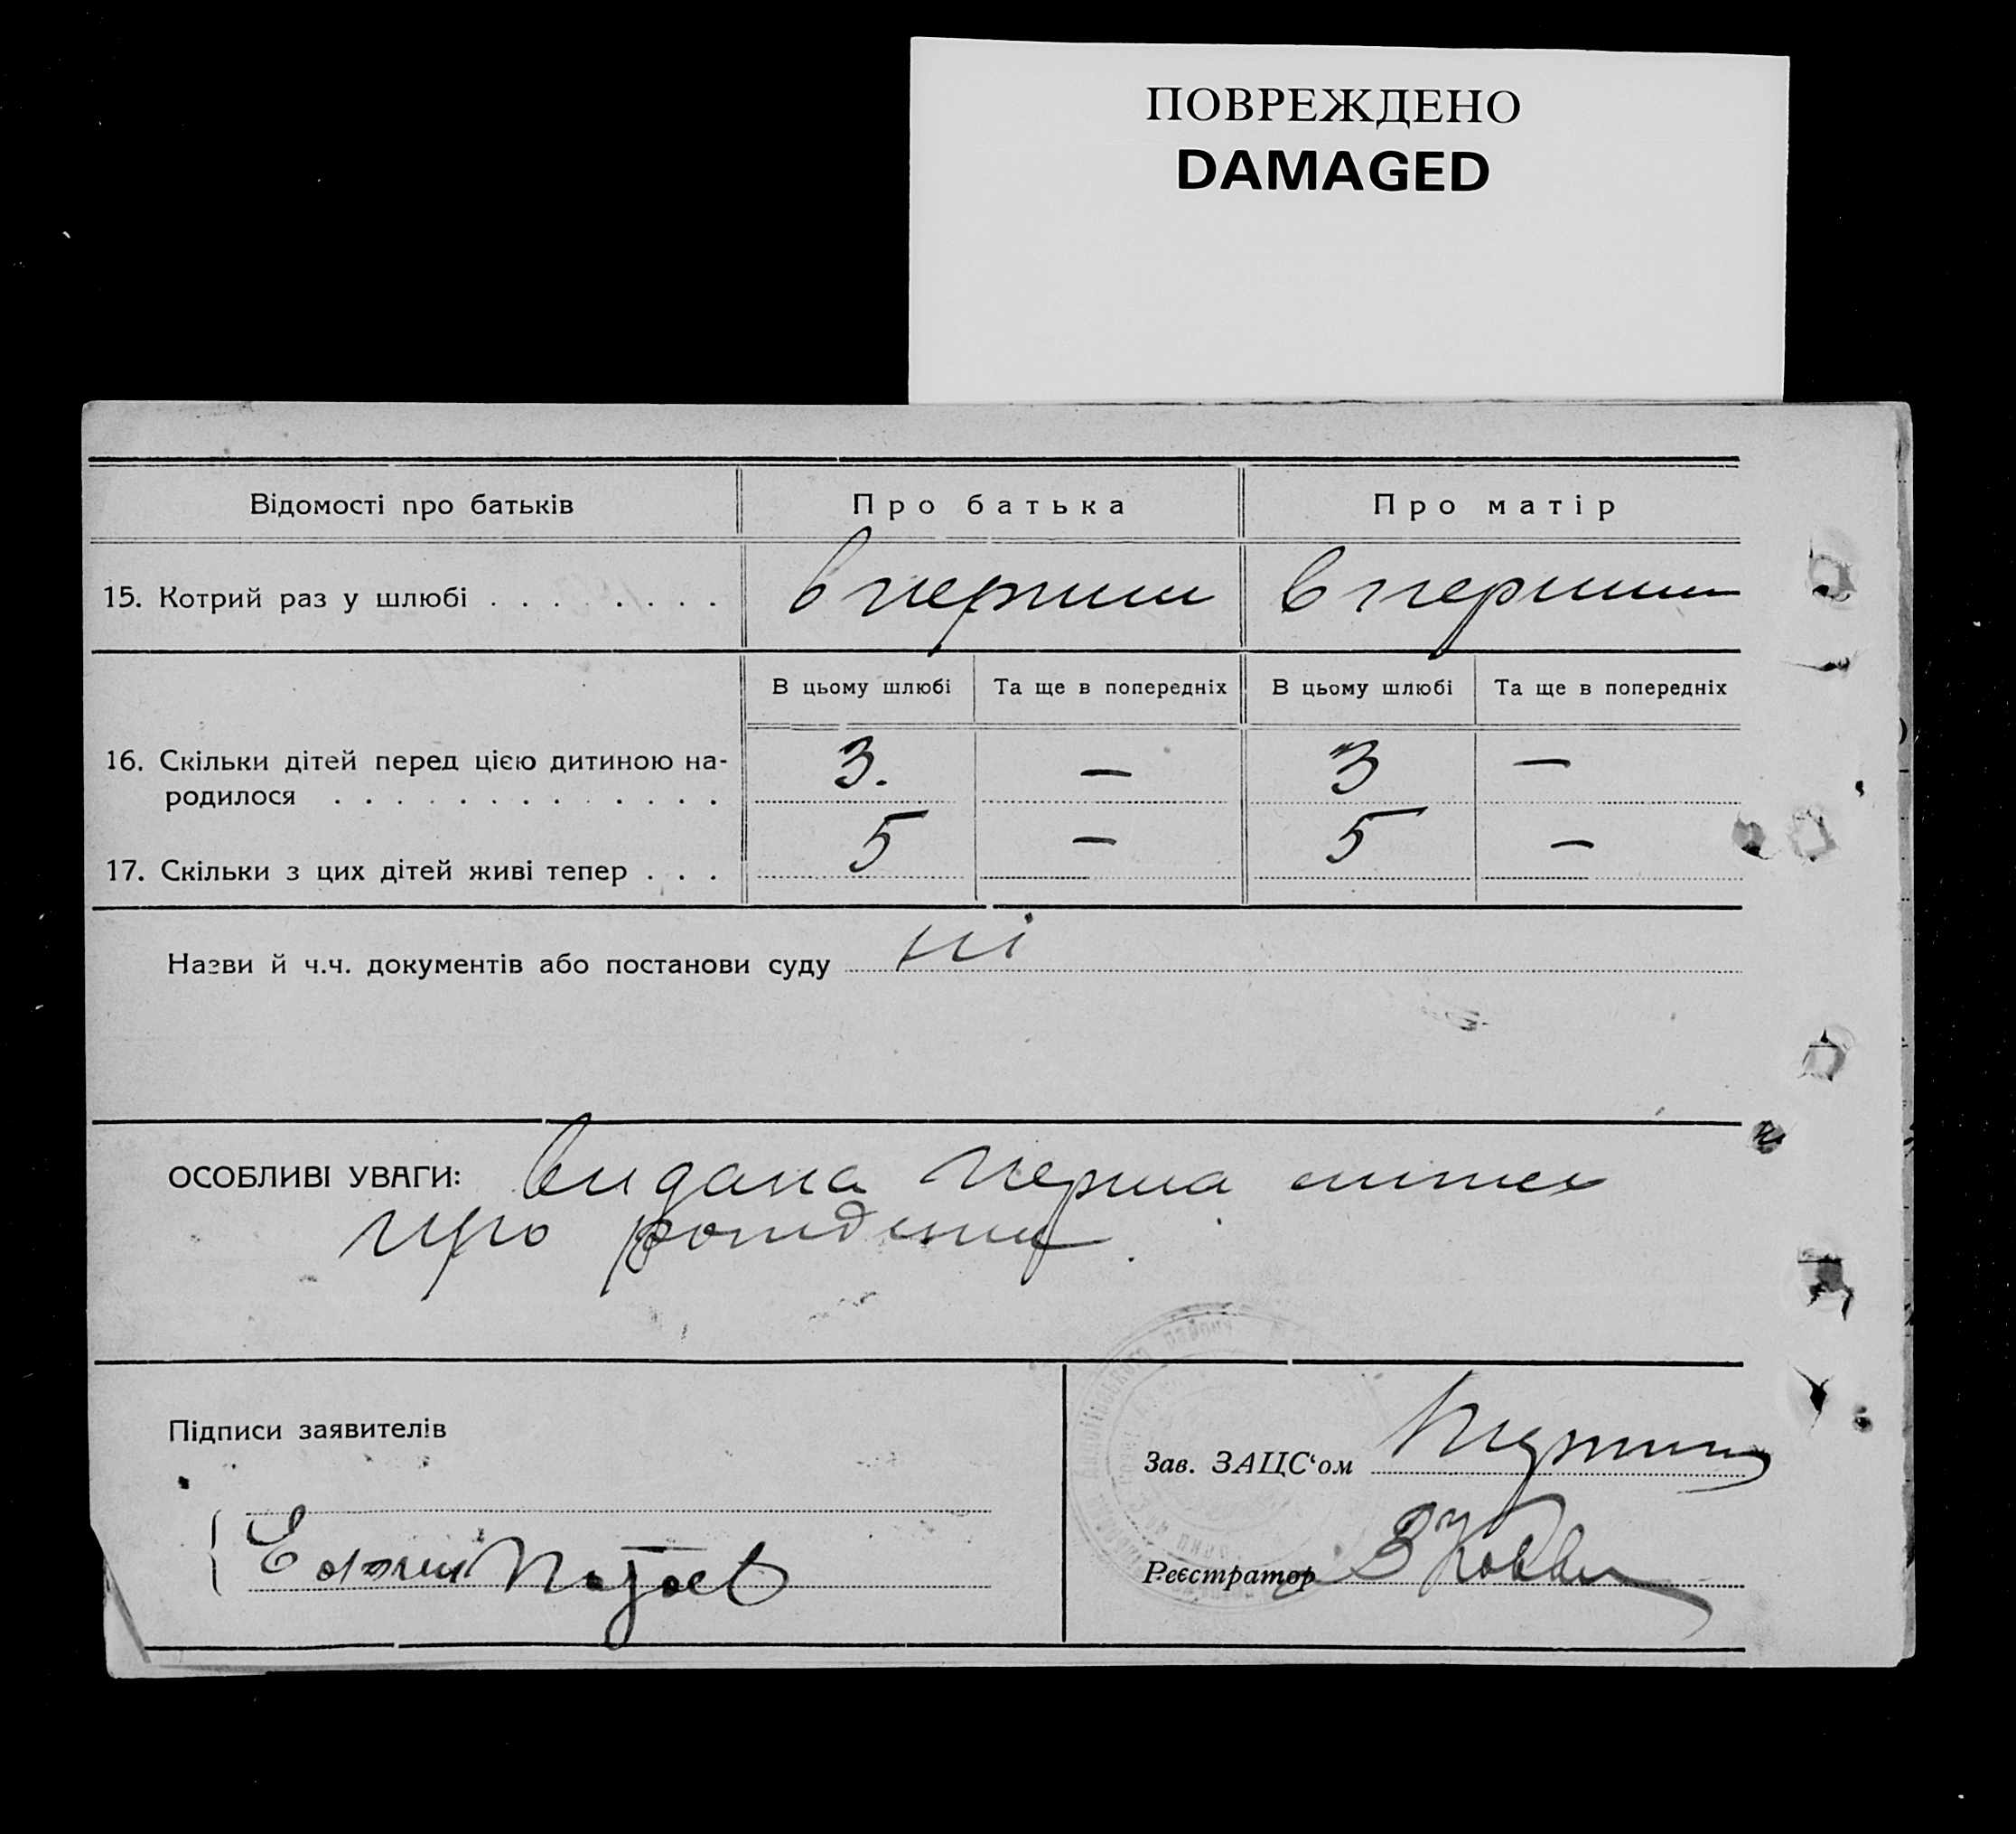 ПОВРЕЖДЕНО
DAMAGED
Відомості про батьків
Про батька
Про матір
15. Котрий раз у шлюбі . . . . . . . .
в перший
в перший
В цьому шлюбі
Та ще в попередніх
В цьому шлюбі
Та ще в попередніх
16. Скільки дітей перед цією дитиною на-
родилося . . . . . . . . . . . . .
3.
—
3
—
17. Скільки з цих дітей живі тепер . . .
5
—
5
—
Назви й ч.ч. документів або постанови суду
ні
ОСОБЛИВІ УВАГИ: видана перша
про
Підписи заявителів
Зав. ЗАЦС‘ом
Реєстратор